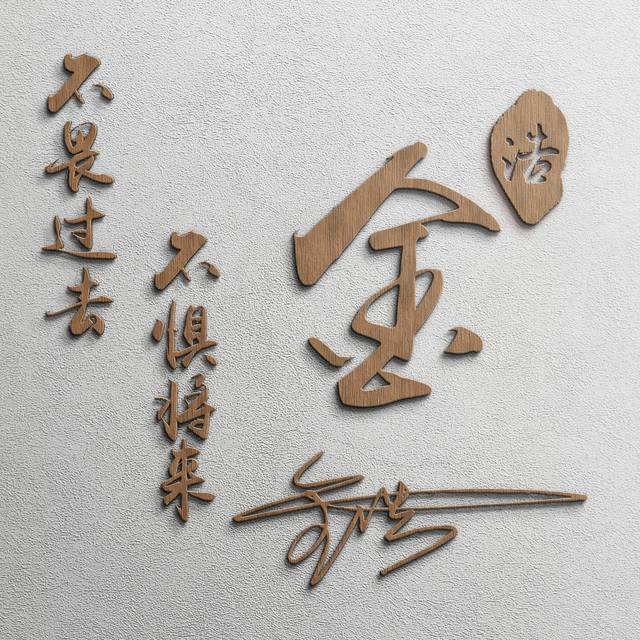 不畏过去
不惧将来
金
浩
金浩